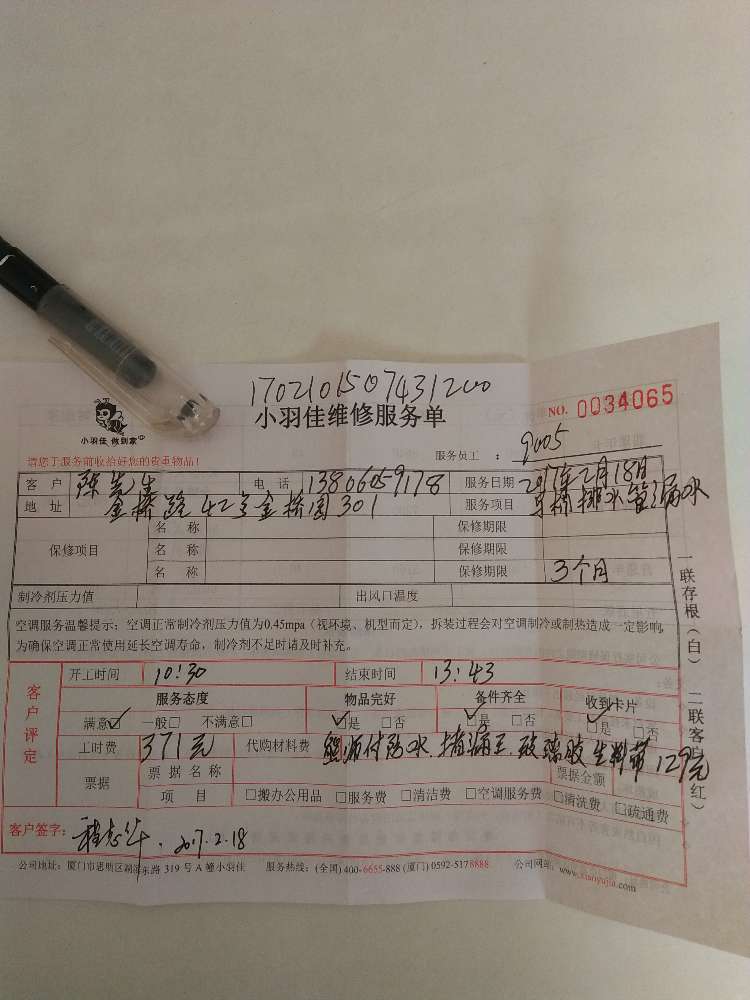 1702101507431200
小羽佳 做到家
小羽佳维修服务单
NO. 0034065
请您于服务前收拾好您的贵重物品!
服务员工 : 9005
客 户 陈先生 电 话 13806059178 服务日期 2017年2月18日
地 址 金桥路42号金桥园301 服务项目 马桶排水管漏水
保修项目
名 称 保修期限
名 称 保修期限
名 称 保修期限 3个月
制冷剂压力值 出风口温度
空调服务温馨提示: 空调正常制冷剂压力值为0.45mpa (视环境、机型而定), 拆装过程会对空调制冷或制热造成一定影响,
为确保空调正常使用延长空调寿命, 制冷剂不足时请及时补充。
客户评定
开工时间 10:30 结束时间 13:43
服务态度 物品完好 备件齐全 收到卡片
满意☑ 一般□ 不满意□ ☑是 □否 ☑是 □否 ☑是 □否
工时费 371元 代购材料费 防水 堵漏王 玻璃胶 生料带 129元
票据
票 据 名 称 票据金额
项 目 □搬办公用品 □服务费 □清洁费 □空调服务费 □清洗费 □疏通费
客户签字: 2017.2.18
公司地址: 厦门市思明区湖滨东路 319 号 A 幢小羽佳 服务热线: (全国) 400-6655-888 (厦门) 0592-5178888 公司网址: www.xiaoyujia.com
一联存根(白) 二联客户(红)